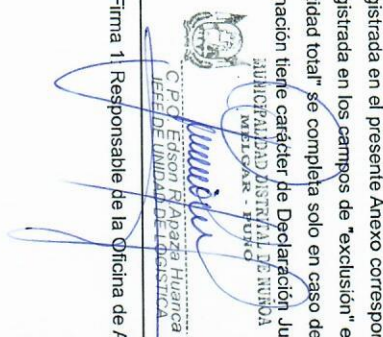 gistrada en el presente Anexo correspon
gistrada en los campos de "exclusión" e
idad total" se completa solo en caso de
nación tiene carácter de Declaración Ju
MUNICIPALIDAD DISTRITAL DE NUÑOA
MELGAR - PUNO
C.P.C. Edson R. Apaza Huanca
JEFE DE UNIDAD DE LOGISTICA
Firma 1: Responsable de la Oficina de A